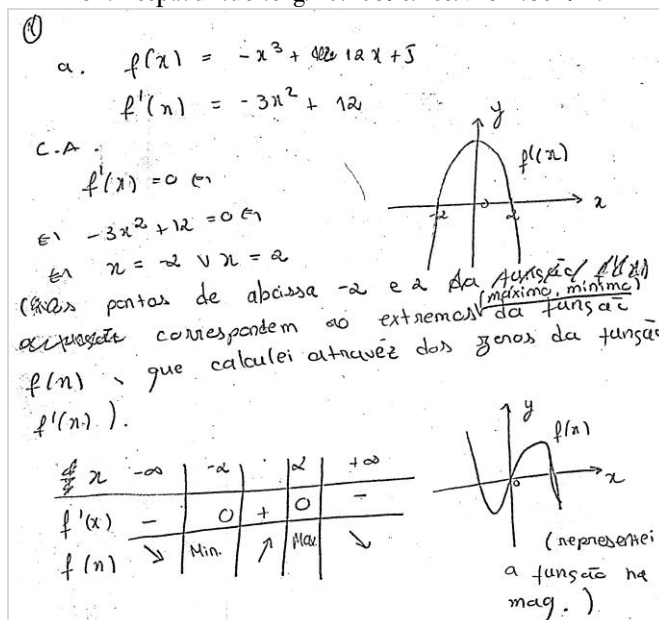 ①
a. f(x) = -x³ + 12x + 5
f'(x) = -3x² + 12
C.A.
f'(x) = 0 ⇔
⇔ -3x² + 12 = 0 ⇔
⇔ x = -2 ∨ x = 2
y
f'(x)
-2 0 2 x
pontos de abcissa -2 e 2 da função f'(x)
correspondem ao extremos (máximo, mínimo) da função
f(x), que calculei atravéz dos zeros da função
f'(x).).
x -∞ -2 2 +∞
f'(x) - 0 + 0 -
f(x) ↘ Min. ↗ Max ↘
y
f(x)
0 x
(representei
a função na
maq.)